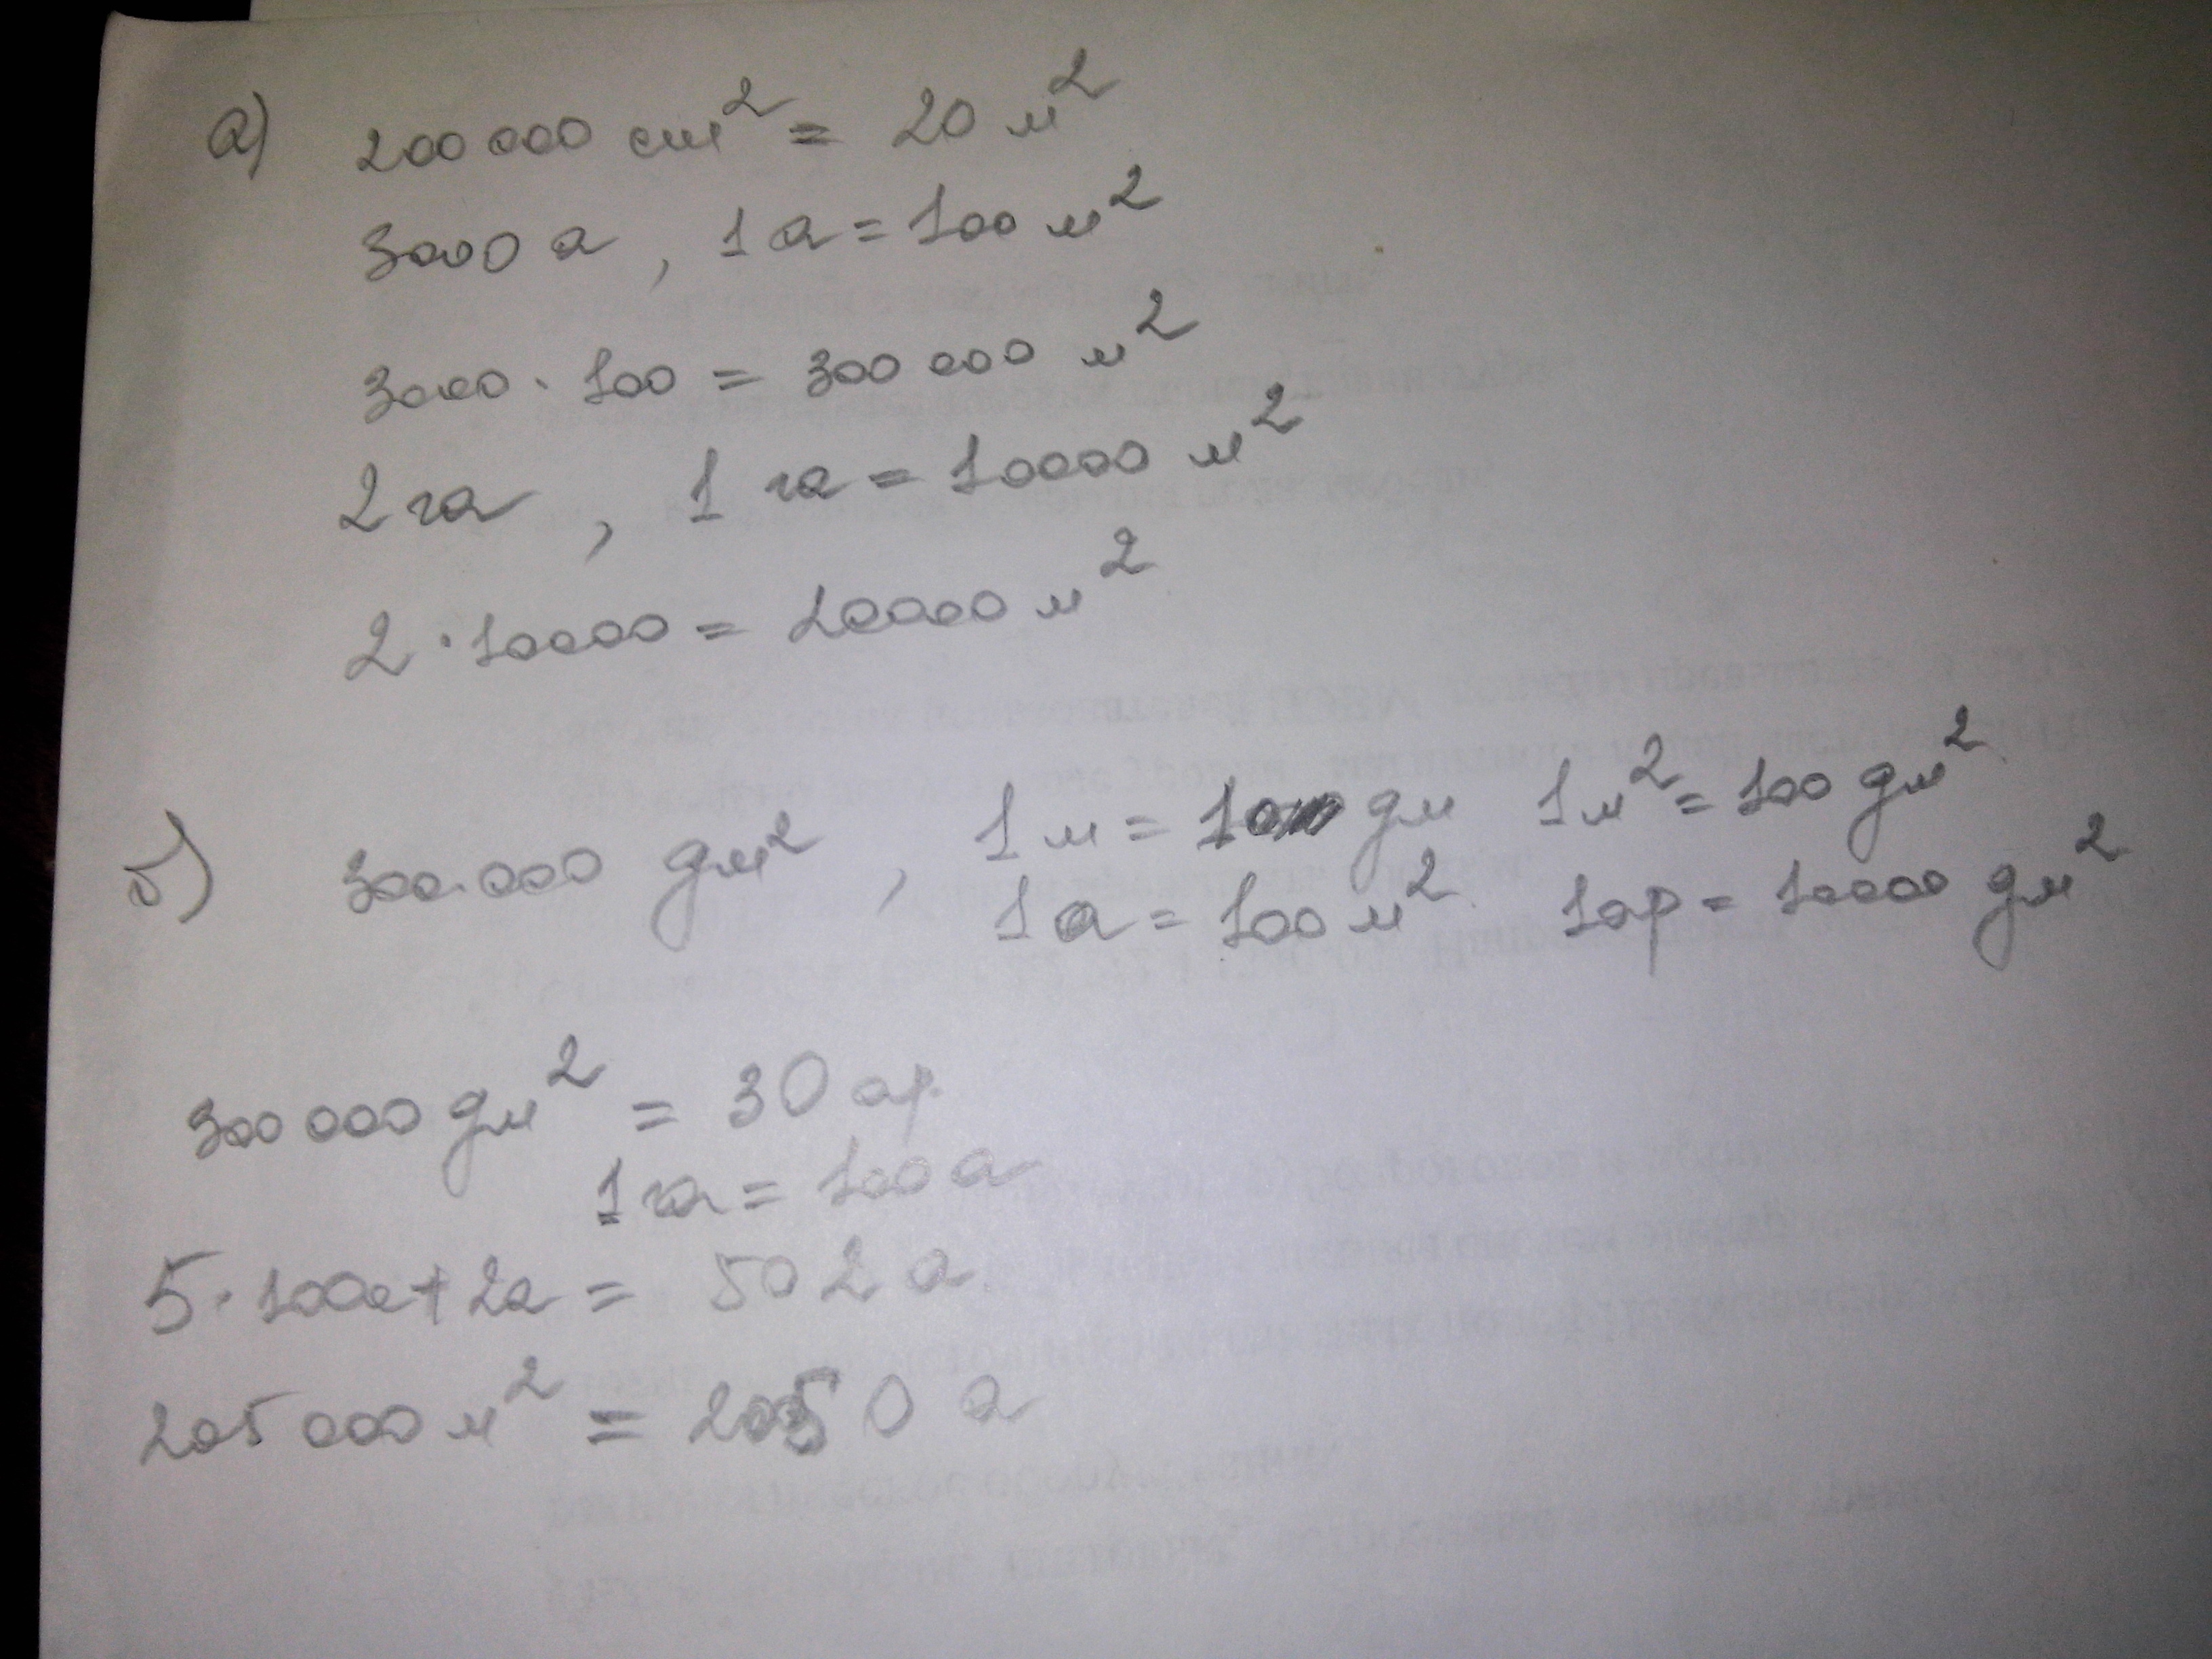 а) 200 000 см² = 20 м²
3000 а , 1 а = 100 м²
3000 · 100 = 300 000 м²
2 га , 1 га = 10000 м²
2 · 10000 = 20000 м²
б) 300 000 дм² , 1 м = 10 дм 1 м² = 100 дм²
1 а = 100 м² 1 ар = 10000 дм²
300 000 дм² = 30 ар.
1 га = 100 а
5 · 100а + 2а = 502 а
205 000 м² = 2050 а